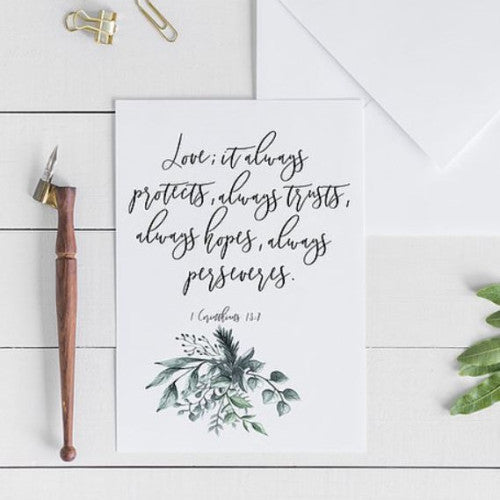 Love; it always
protects, always trusts,
always hopes, always
perseveres.
1 Corinthians 13:7